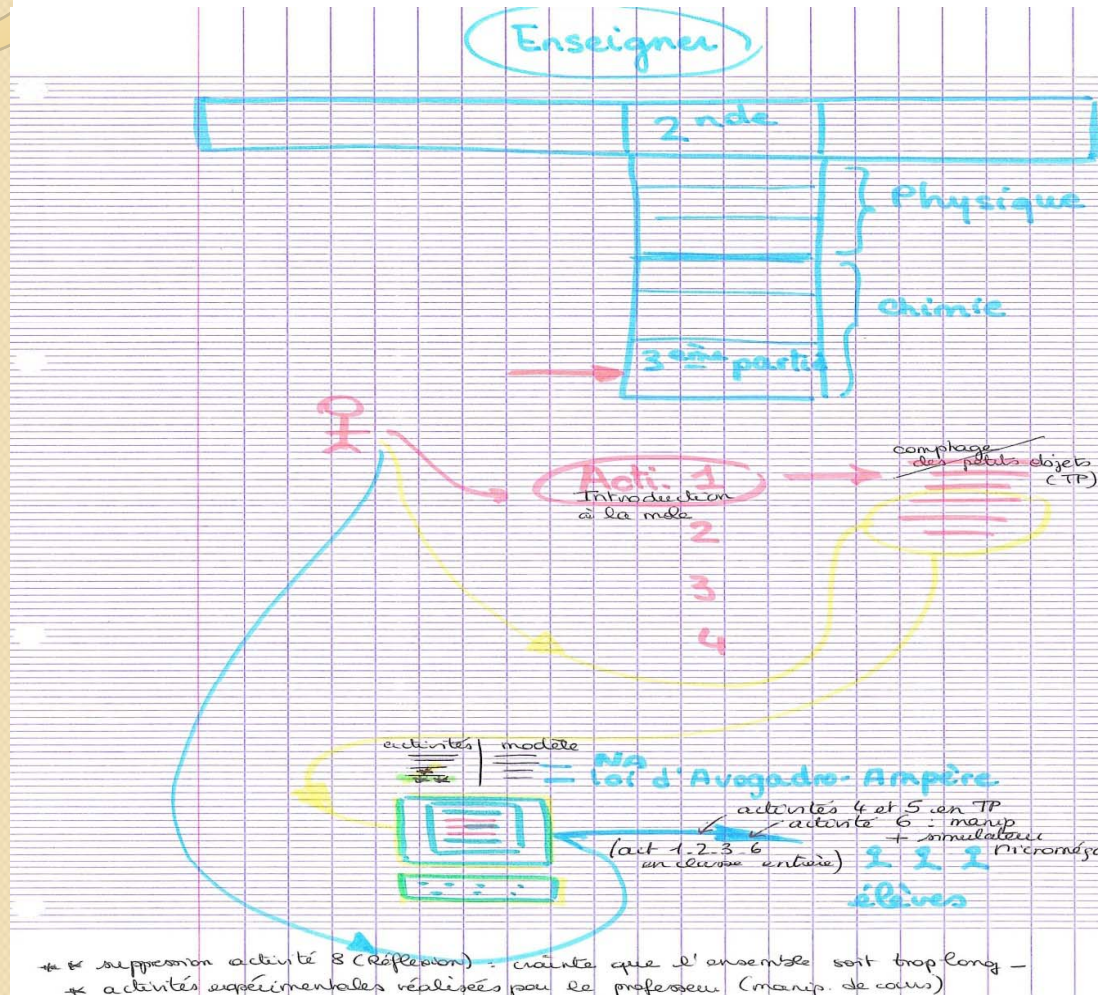 Enseigner
2nde
Physique
Chimie
3ème partie
comptage
des petits objets
(TP)
Acti. 1
Introduction
à la mole
2
3
4
activités | modèle
**
NA
loi d'Avogadro-Ampère
activités 4 et 5 en TP
activité 6 : manip
+ simulateur
(act 1-2-3-6
en classe entière)
élèves
** suppression activité 8 (Réflexion) : crainte que l'ensemble soit trop long -
* activités expérimentales réalisées par le professeur (manip. de cours)